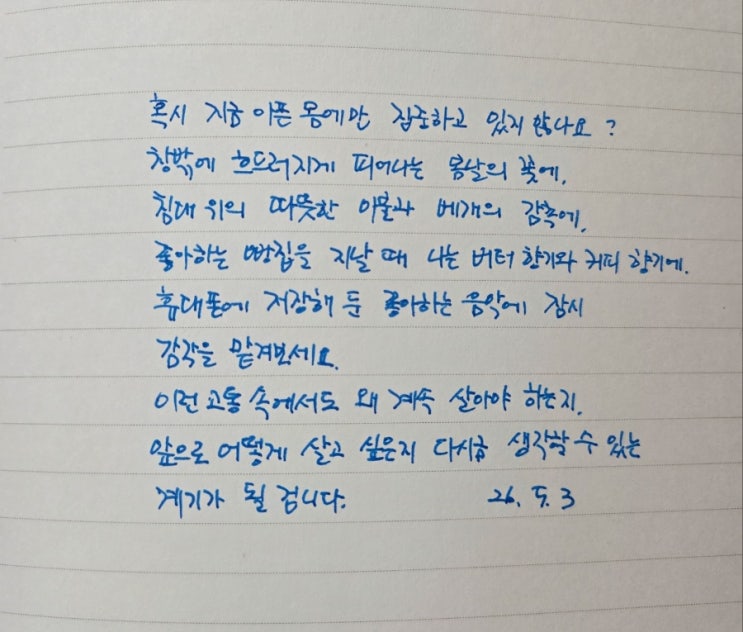 혹시 지금 아픈 몸에만 집중하고 있지 않나요?
창밖에 흐드러지게 피어나는 봄날의 꽃에,
침대 위의 따뜻한 이불과 베개의 감촉에,
좋아하는 빵집을 지날 때 나는 버터 향기와 커피 향기에.
휴대폰에 저장해 둔 좋아하는 음악에 잠시
감각을 맡겨보세요.
이런 고통 속에서도 왜 계속 살아야 하는지,
앞으로 어떻게 살고 싶은지 다시금 생각할 수 있는
계기가 될 겁니다. 26. 5. 3